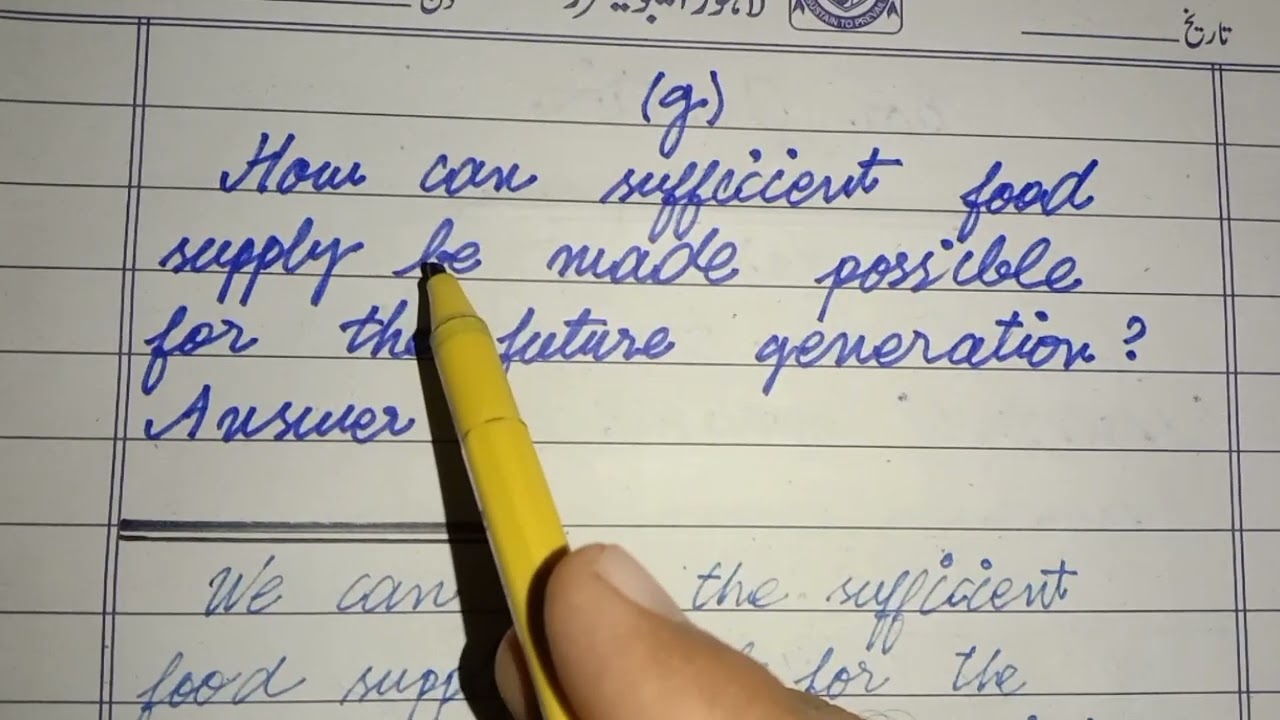 SUSTAIN TO PREVAIL
تاریخ
(g)
How can sufficient food
supply be made possible
for the future generation?
Answer
We can the sufficient
food for the